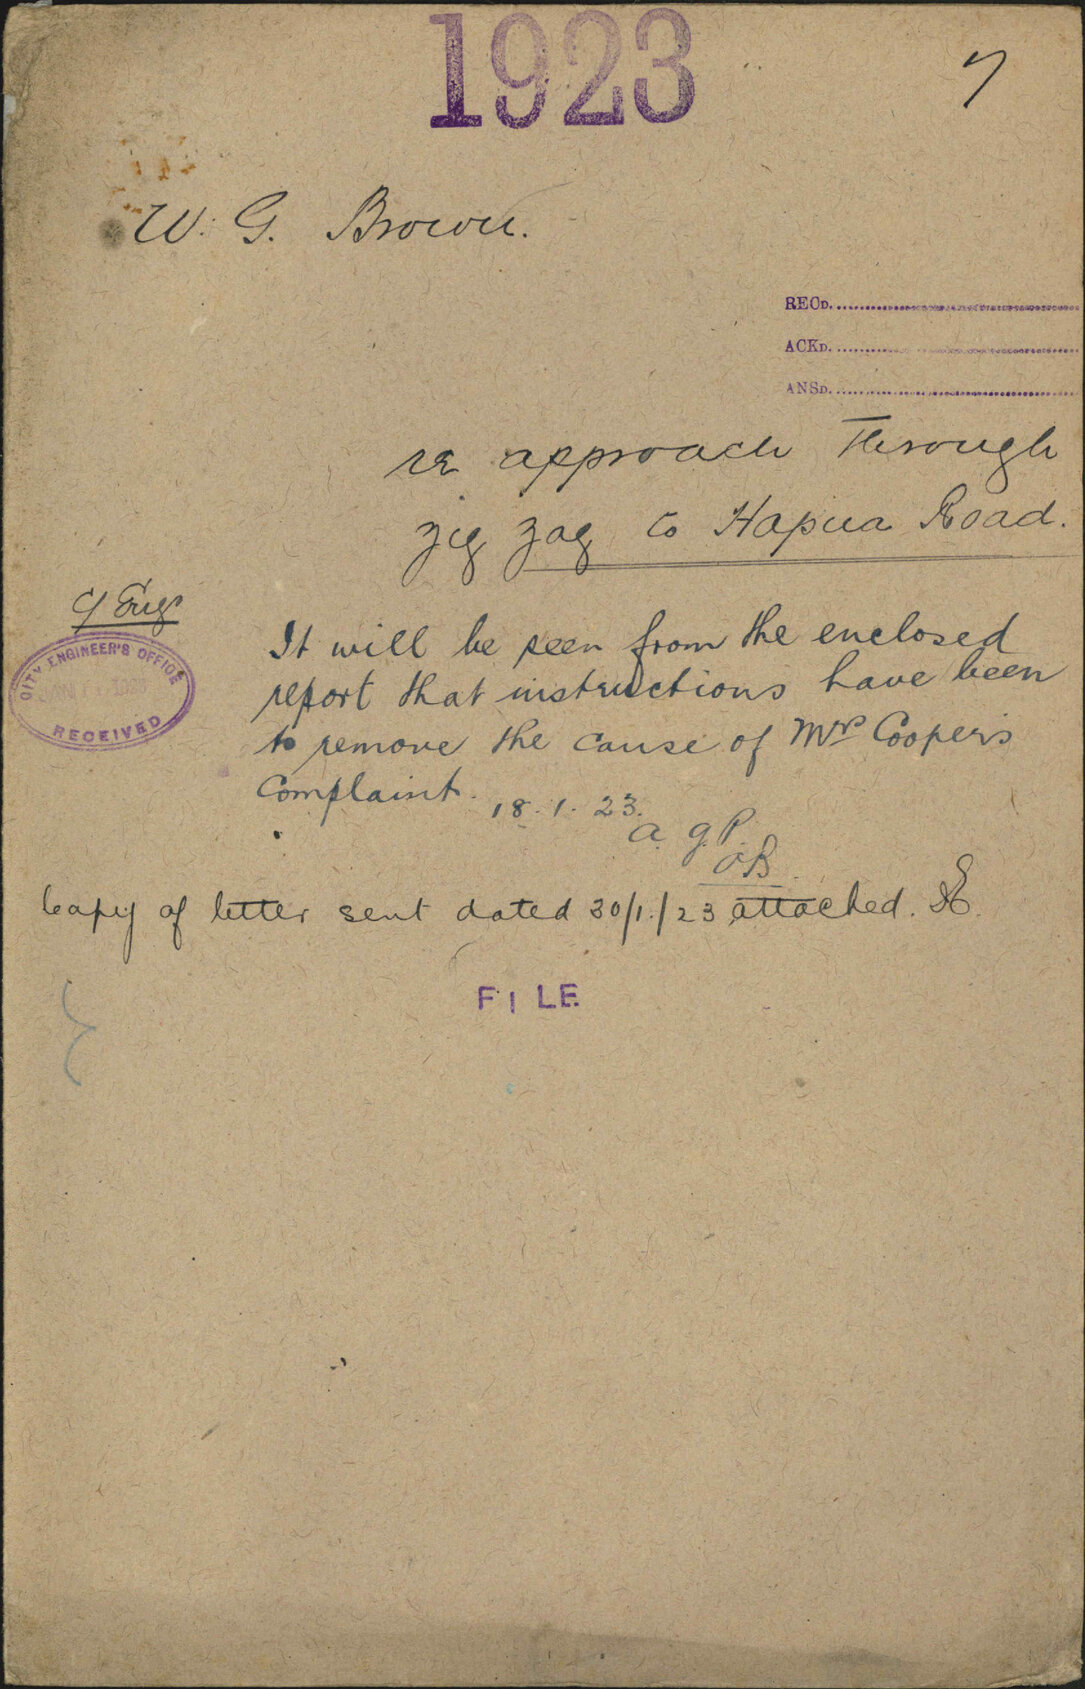 1923
7
W. G. Brown.
RECD.
ACKD.
ANSD.
re approach through
zig zag to Hapua Road.
C/ Engr
CITY ENGINEER'S OFFICE
RECEIVED
It will be seen from the enclosed
report that instructions have been
to remove the cause of Mrs Cooper's
Complaint.
18.1.23.
a. g. P.
Copy of letter sent dated 30/1/23 attached.
FILE